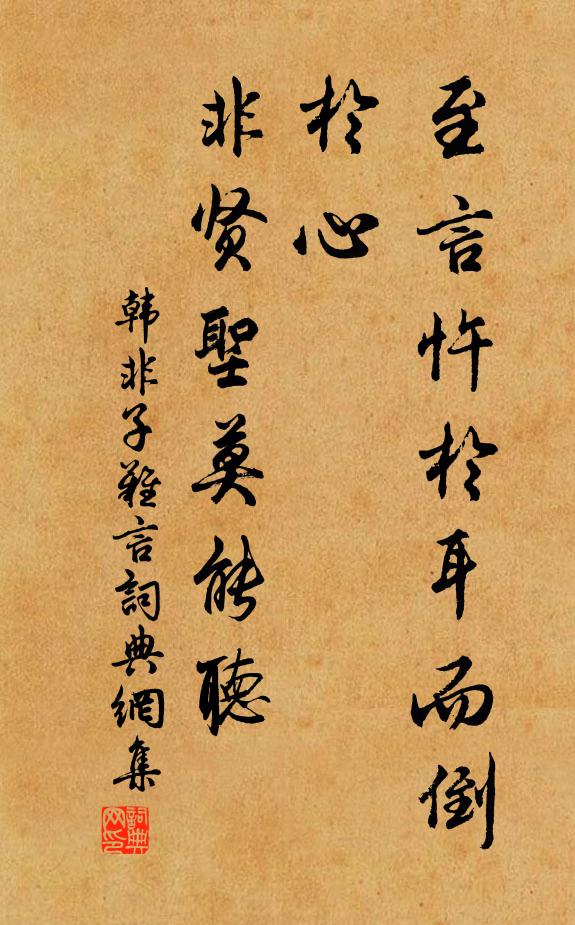 至言忤於耳而倒
於心
非贤聖莫能聽
韩非子難言詞典網集
詞典
网印